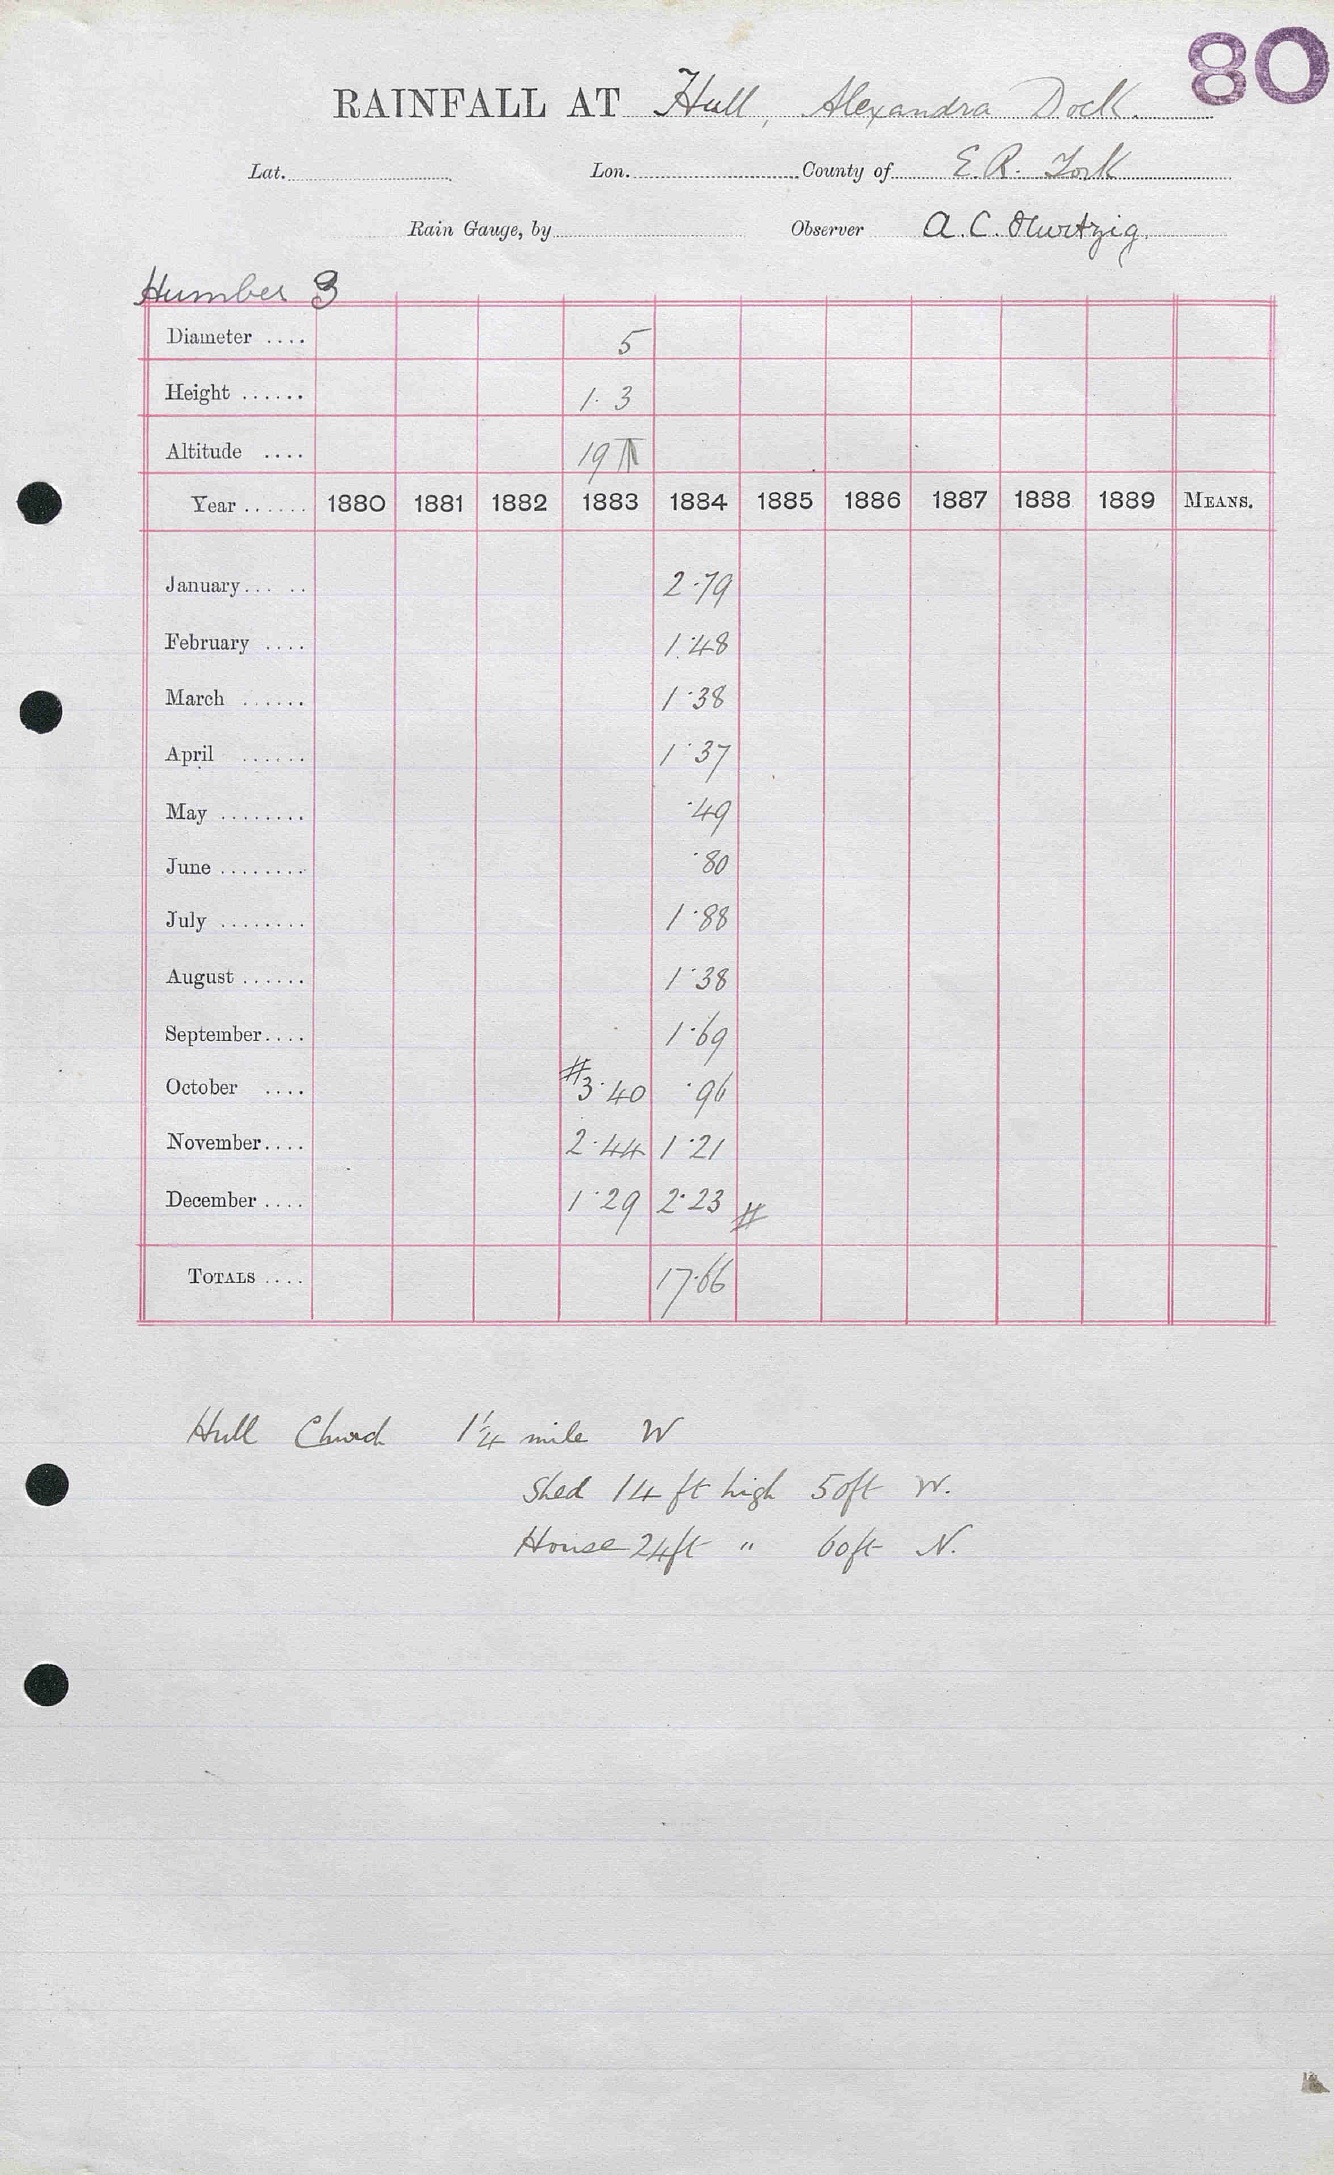 80
RAINFALL AT Hull, Alexandra Dock.
Lat. Lon. County of E. R. York
Rain Gauge, by Observer A. C. Hurtzig.
Humber 3
Diameter .... 5
Height ...... 1. 3
Altitude .... 19
Year ...... 1880 1881 1882 1883 1884 1885 1886 1887 1888 1889 MEANS.
January ... .. 2·79
February .... 1.48
March ...... 1·38
April ...... 1·37
May ........ ·49
June ........ ·80
July ........ 1·88
August ...... 1·38
September .... 1·69
October .... #3·40 ·96
November .... 2·44 1·21
December .... 1·29 2·23 #
TOTALS .... 17·66
Hull Church 1¼ mile W
Shed 14 ft high 50ft W.
House 24ft " 60ft N.